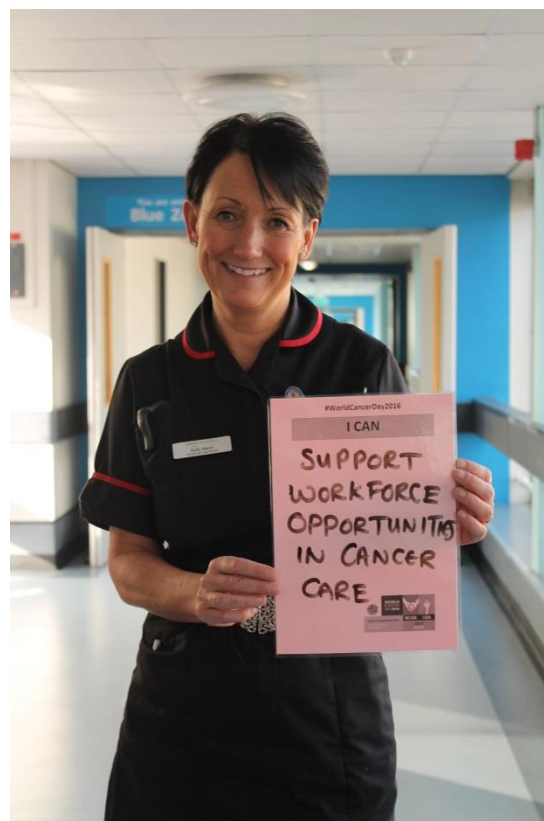 You are
Blue Z
#WorldCancerDay2016
I CAN
SUPPORT
WORKFORCE
OPPORTUNITIES
IN CANCER
CARE